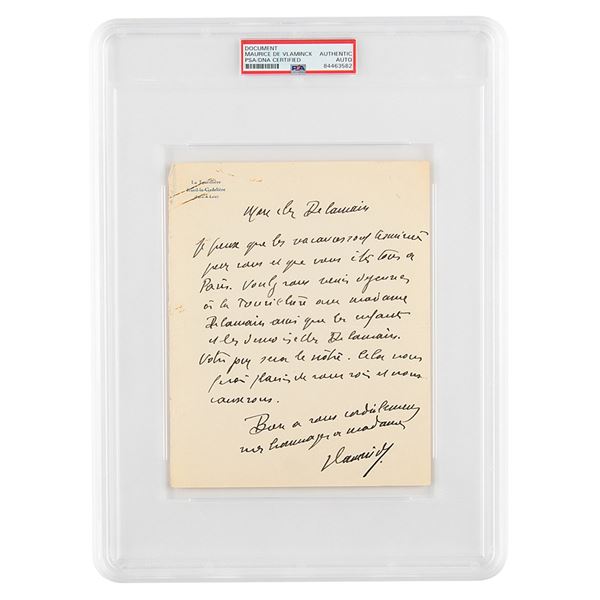 DOCUMENT
MAURICE DE VLAMINCK AUTHENTIC
PSA/DNA CERTIFIED AUTO
PSA 84463582
La Tourillière
Rueil-la-Gadelière
Mon cher Delamain
Je pense que les vacances sont terminées
pour vous et que vous êtes tous à
Paris. Voulez vous venir déjeuner
à la Tourillière avec madame
Delamain ainsi que les enfants
et les demoiselles Delamain.
Votre jour sera le nôtre. Cela nous
fera plaisir de vous voir et nous
causerons.
Bien à vous cordialement
mes hommages à madame
Vlaminck